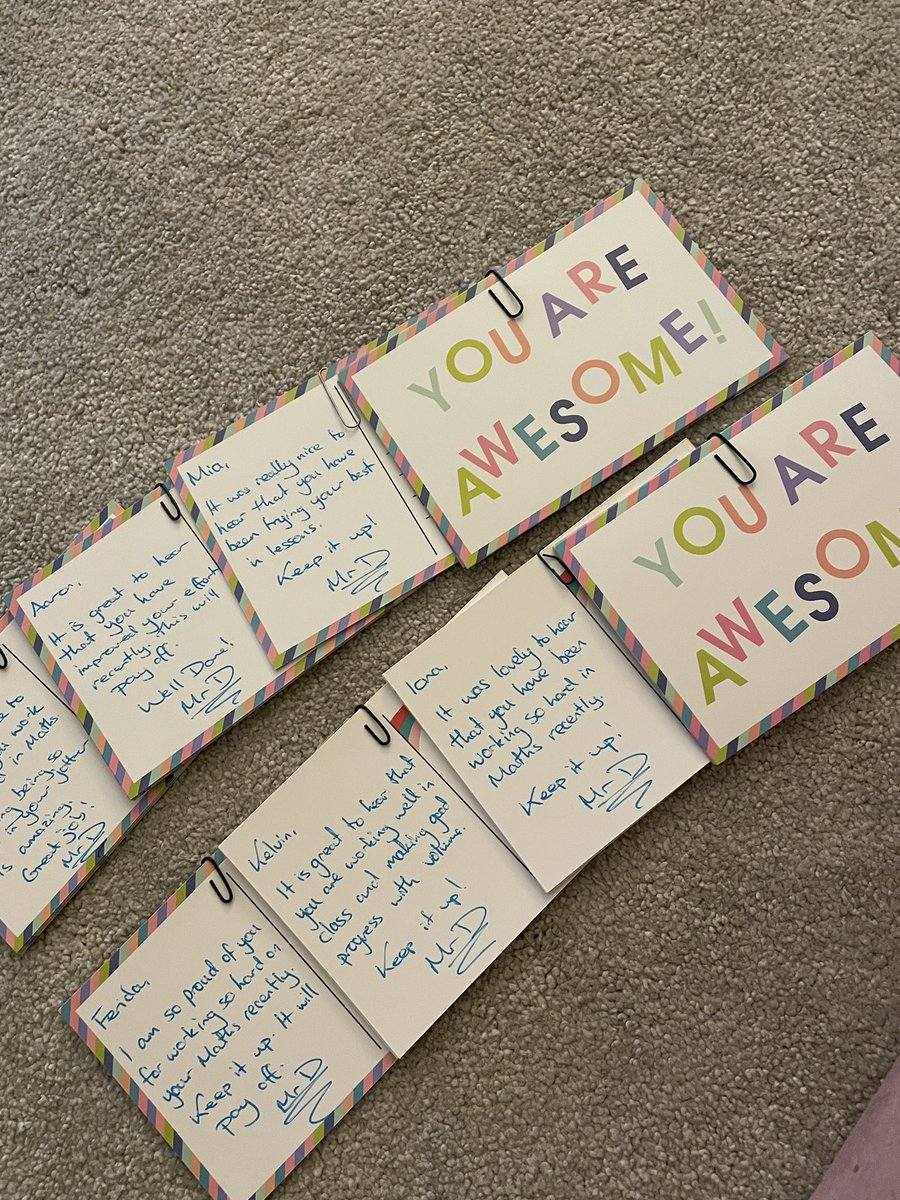 YOU ARE
AWESOME!
Mia,
It was really nice to
hear that you have
been trying your best
in lessons.
Keep it up!
Mr D
Aaron,
It is great to hear
that you have
improved your effort
recently. this will
pay off.
Well Done!
Mr D
to
you work
in Maths
being so
in your
is amazing.
Great
Mr D
YOU ARE
AWESOM
Iona,
It was lovely to hear
that you have been
working so hard in
Maths recently.
Keep it up!
Mr D
Kelvin,
It is great to hear that
you are working well in
class and making good
progress with volume.
Keep it up!
Mr D
Fenda,
I am so proud of you
for working so hard on
your Maths recently.
Keep it up. It will
pay off.
Mr D